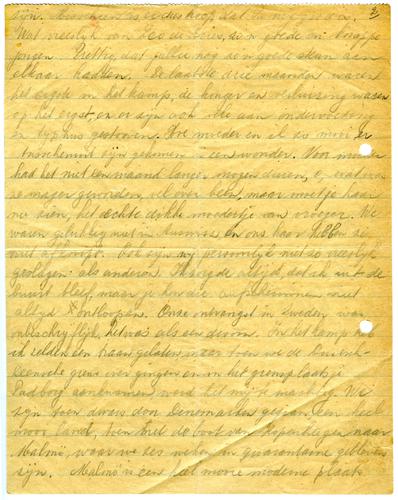 zijn.
Wat vreeselijk van Leo de Vries, zo'n goede en knappe
jongen. Prettig, dat jullie nog zo'n goede steun aan
elkaar hadden. De laatste drie maanden waren
het ergste in het kamp, de honger en verluizing waren
op het ergst, en er zijn ook velen aan ondervoeding
en typhus gestorven. Hoe moeder en ik zo mooi er
zijn gekomen is een wonder. Voor moeder
had het niet een maand langer mogen duren, o, wat was
ze mager geworden, vel over been, maar moet je haar
nu zien, het echte dikke moedertje van vroeger. We
waren gelukkig niet in en ons haar hebben ze
niet Ook zijn wij persoonlijk niet zo vreselijk
geslagen als anderen. Ik zorgde altijd, dat ik uit de
buurt bleef, maar je kon die niet
altijd ontloopen. Onze ontvangst in Zweden was
onbeschrijflijk, het was als een droom. In het kamp heb
ik zelden een traan gelaten, maar toen we de Duitsch-
Deensche grens over gingen en in het grensplaatsje
Padborg aankwamen werd het mij te machtig. We
zijn toen dwars door Denemarken gegaan, een heel
mooi land, toen met de boot van Kopenhagen naar
Malmö, waar we zes weken in quarantaine gebleven
zijn. Malmö is een heel mooie moderne plaats